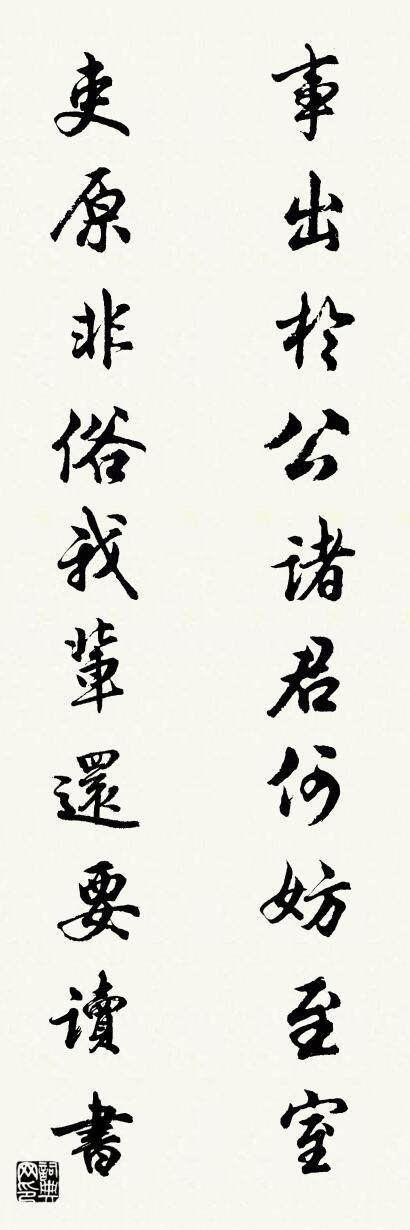 事出於公諸君何妨至室
吏原非俗我輩還要讀書
詞典網印